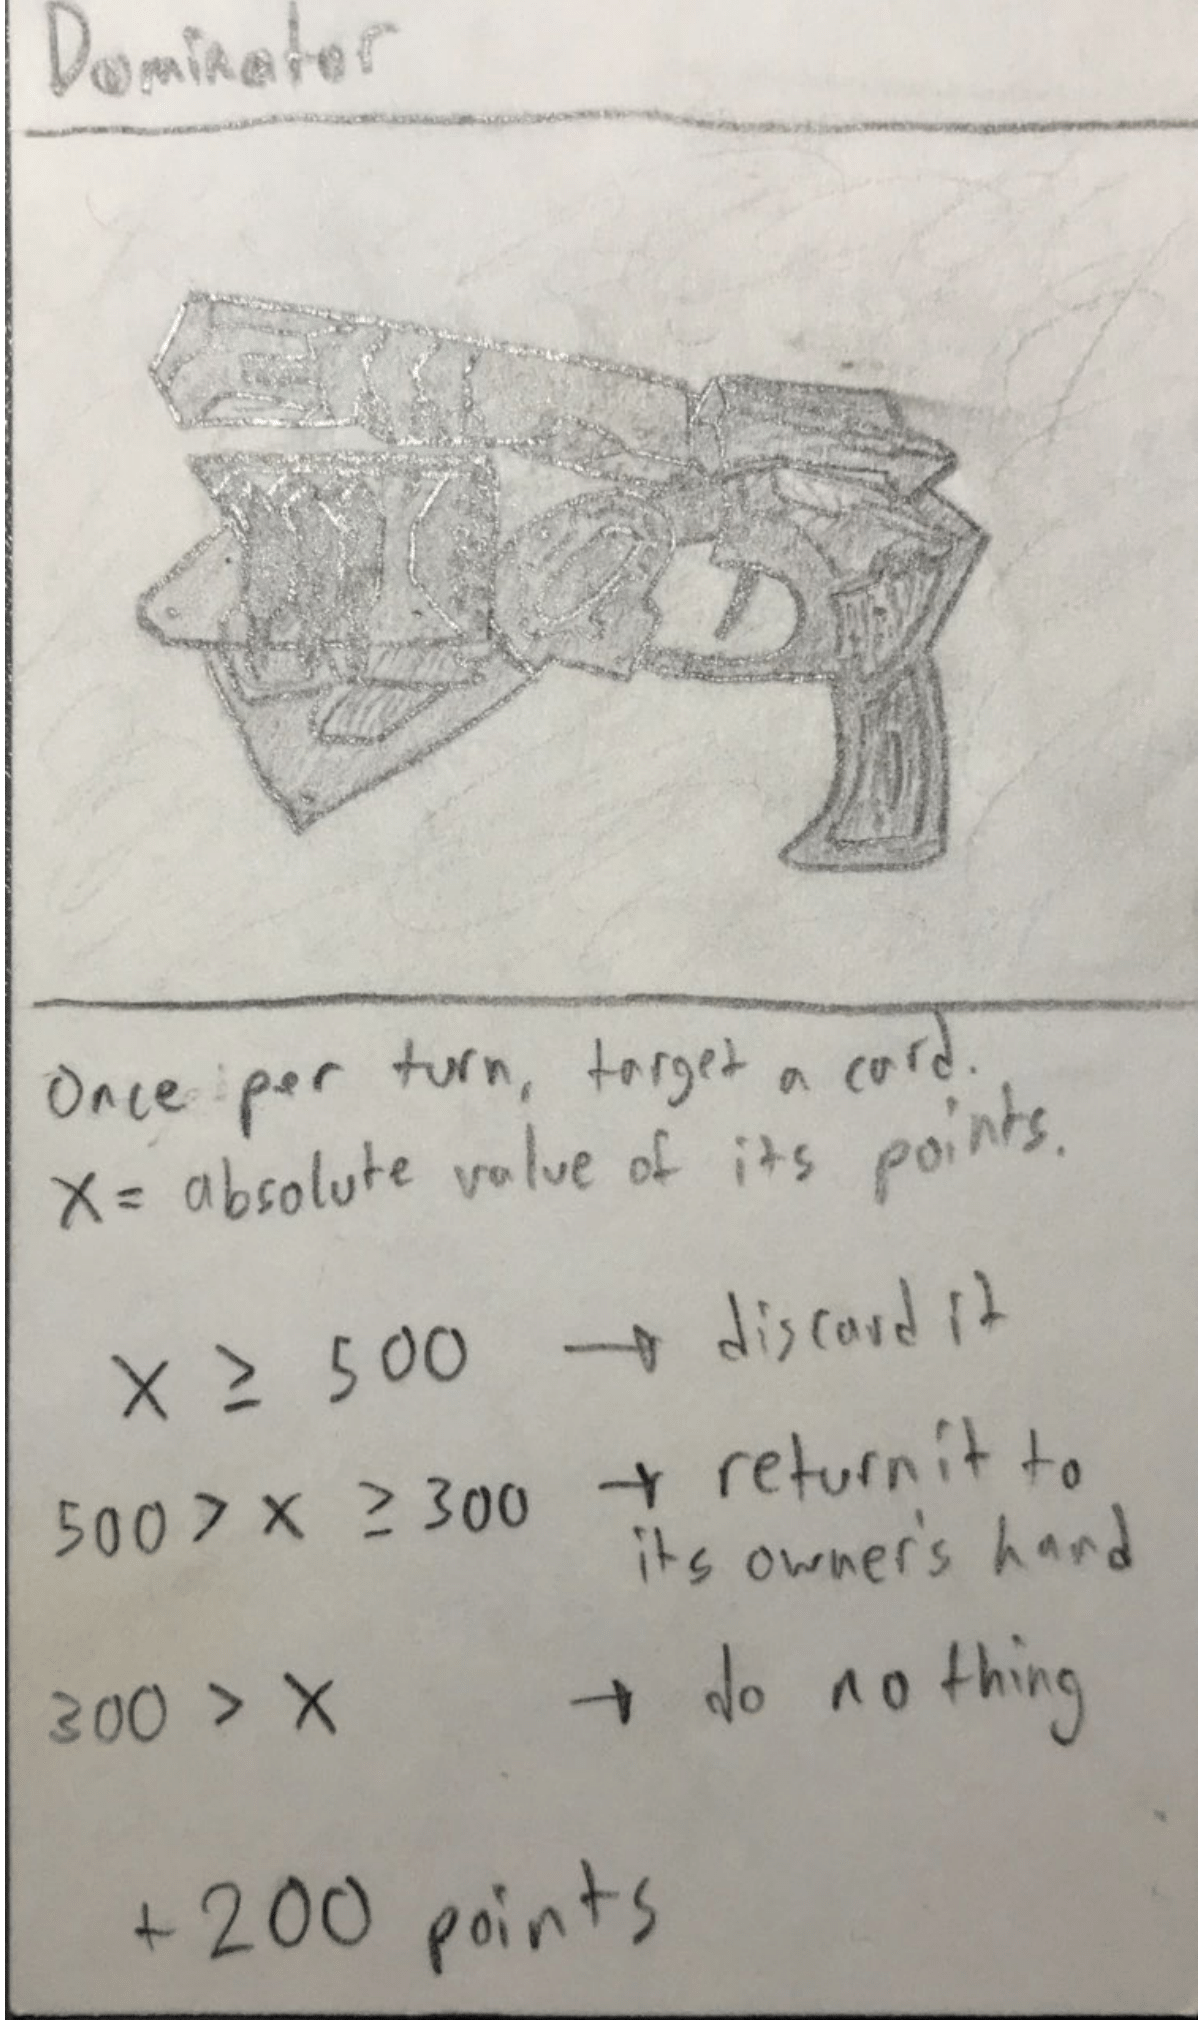 Dominator
Once per turn, target a card.
X = absolute value of its points.
X ≥ 500 → discard it
500 > X ≥ 300 → return it to
its owner's hand
300 > X → do nothing
+200 points